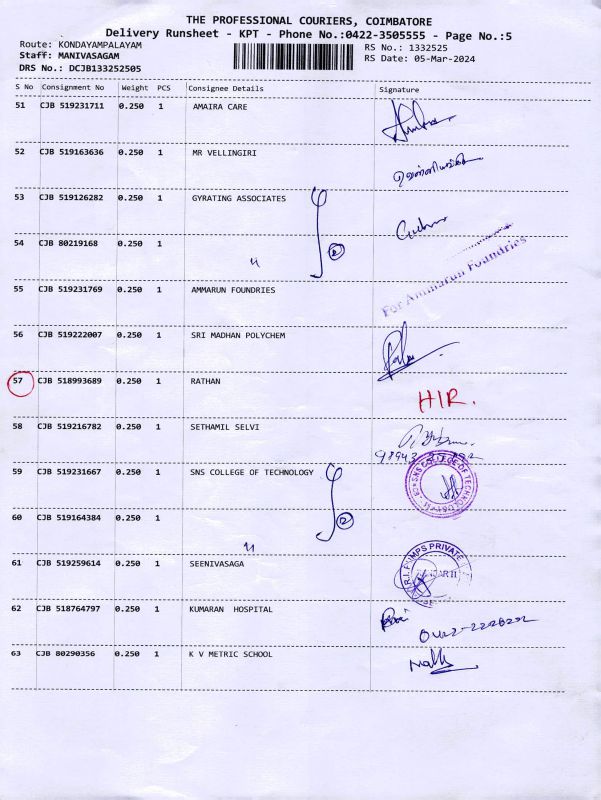 THE PROFESSIONAL COURIERS, COIMBATORE
Delivery Runsheet - KPT - Phone No.:0422-3505555 - Page No.:5
Route: KONDAYAMPALAYAM
RS No.: 1332525
Staff: MANIVASAGAM
RS Date: 05-Mar-2024
DRS No.: DCJB133252505
S No Consignment No Weight PCS Consignee Details Signature
51 CJB 519231711 0.250 1 AMAIRA CARE
52 CJB 519163636 0.250 1 MR VELLINGIRI
53 CJB 519126282 0.250 1 GYRATING ASSOCIATES
54 CJB 80219168 0.250 1 " 2
For Ammarun Foundries
55 CJB 519231769 0.250 1 AMMARUN FOUNDRIES
56 CJB 519222007 0.250 1 SRI MADHAN POLYCHEM
57 CJB 518993689 0.250 1 RATHAN HIR.
58 CJB 519216782 0.250 1 SETHAMIL SELVI
59 CJB 519231667 0.250 1 SNS COLLEGE OF TECHNOLOGY SNS COLLEGE OF TECHNOLOGY
60 CJB 519164384 0.250 1 " 2
61 CJB 519259614 0.250 1 SEENIVASAGA PUMPS PRIVATE
62 CJB 518764797 0.250 1 KUMARAN HOSPITAL
63 CJB 80290356 0.250 1 K V METRIC SCHOOL